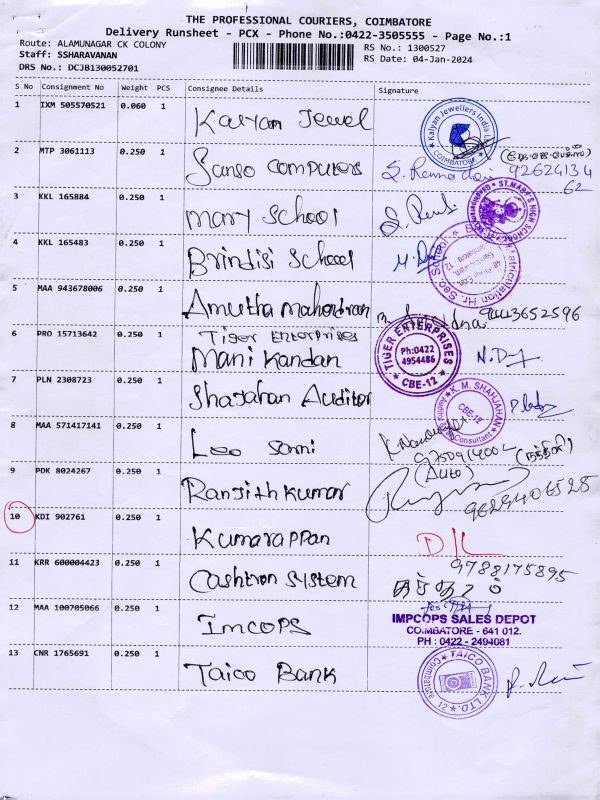 THE PROFESSIONAL COURIERS, COIMBATORE
Delivery Runsheet - PCX - Phone No.:0422-3505555 - Page No.:1
Route: ALAMUNAGAR CK COLONY
Staff: SSHARAVANAN
DRS No.: DCJB130052701
RS No.: 1300527
RS Date: 04-Jan-2024
S No Consignment No Weight PCS Consignee Details Signature
1 IXM 505570521 0.060 1 Kalyan Jewel
Kalyan Jewellers India
COIMBATORE
2 MTP 3061113 0.250 1 Sanso Computers
92624134
62
3 KKL 165884 0.250 1 Mary School
ST. MARY'S HIGH SCHOOL
4 KKL 165483 0.250 1 Brindisi School
Matriculation Hr. Sec School
5 MAA 943678006 0.250 1 Amutha Mahendran
6 PRO 15713642 0.250 1 Tiger Enterprises
Mani Kandan
TIGER ENTERPRISES
Ph:0422
4954486
CBE-12
N.D
7 PLN 2308723 0.250 1 Shajahan Auditor
K. M. SHAHJAHAN
CBE-12
Consultant
8 MAA 571417141 0.250 1 Leo Sami
(Auto)
9 PDK 8024267 0.250 1 Ranjith Kumar
9629406528
10 KDI 902761 0.250 1 Kumarappan
D/L
11 KRR 600004423 0.250 1 Cashtron System
9788175895
12 MAA 100705066 0.250 1 Imcops
IMPCOPS SALES DEPOT
COIMBATORE - 641 012.
PH : 0422 - 2494081
13 CNR 1765691 0.250 1 Taico Bank
TAICO BANK LTD.
Coimbatore
12